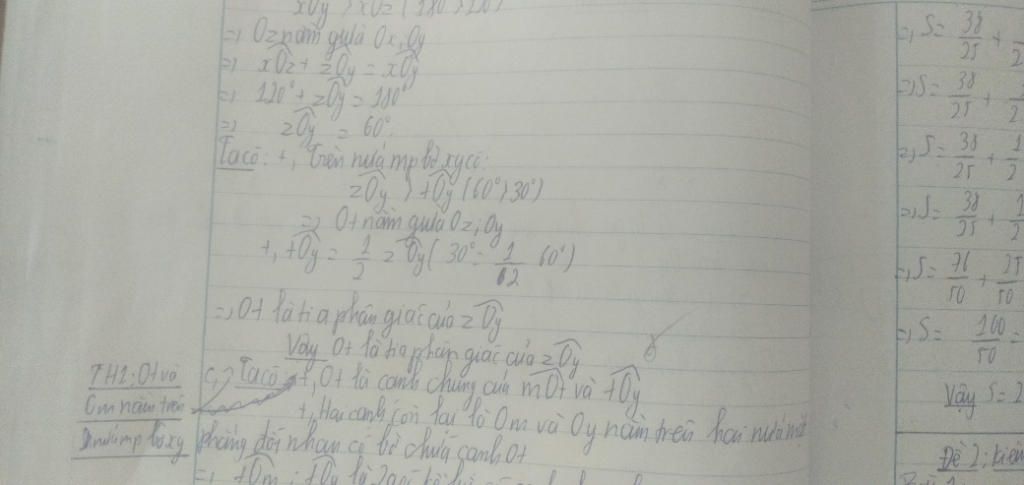 xOy > xOz (180° > 120°)
=, Oz nằm giữa Ox, Oy
=, xOz + zOy = xOy
=, 120° + zOy = 180°
=, zOy = 60°
Ta có: +, Trên nửa mp bờ xy có:
zOy > tOy (60° > 30°)
=, Ot nằm giữa Oz, Oy
+, tOy = 1/2 zOy (30° = 1/2 60°)
=, Ot là tia phân giác của zOy
Vậy Ot là tia phân giác của zOy
c, Ta có: +, Ot là cạnh chung của mOt và tOy
+, Hai cạnh còn lại là Om và Oy nằm trên hai nửa mặt
phẳng đối nhau có bờ chứa cạnh Ot
=, tOm; tOy là 2 góc kề
TH1: Ot và
Om nằm trên
nửa mp bờ xy
=, S = 38/25 +
=, S = 38/25 +
=, S = 38/25 + 1/2
=, S = 38/25 + 1/2
=, S = 76/50 + 25/50
=, S = 100/50 =
Vậy S = 2
Đề 2: kiểm